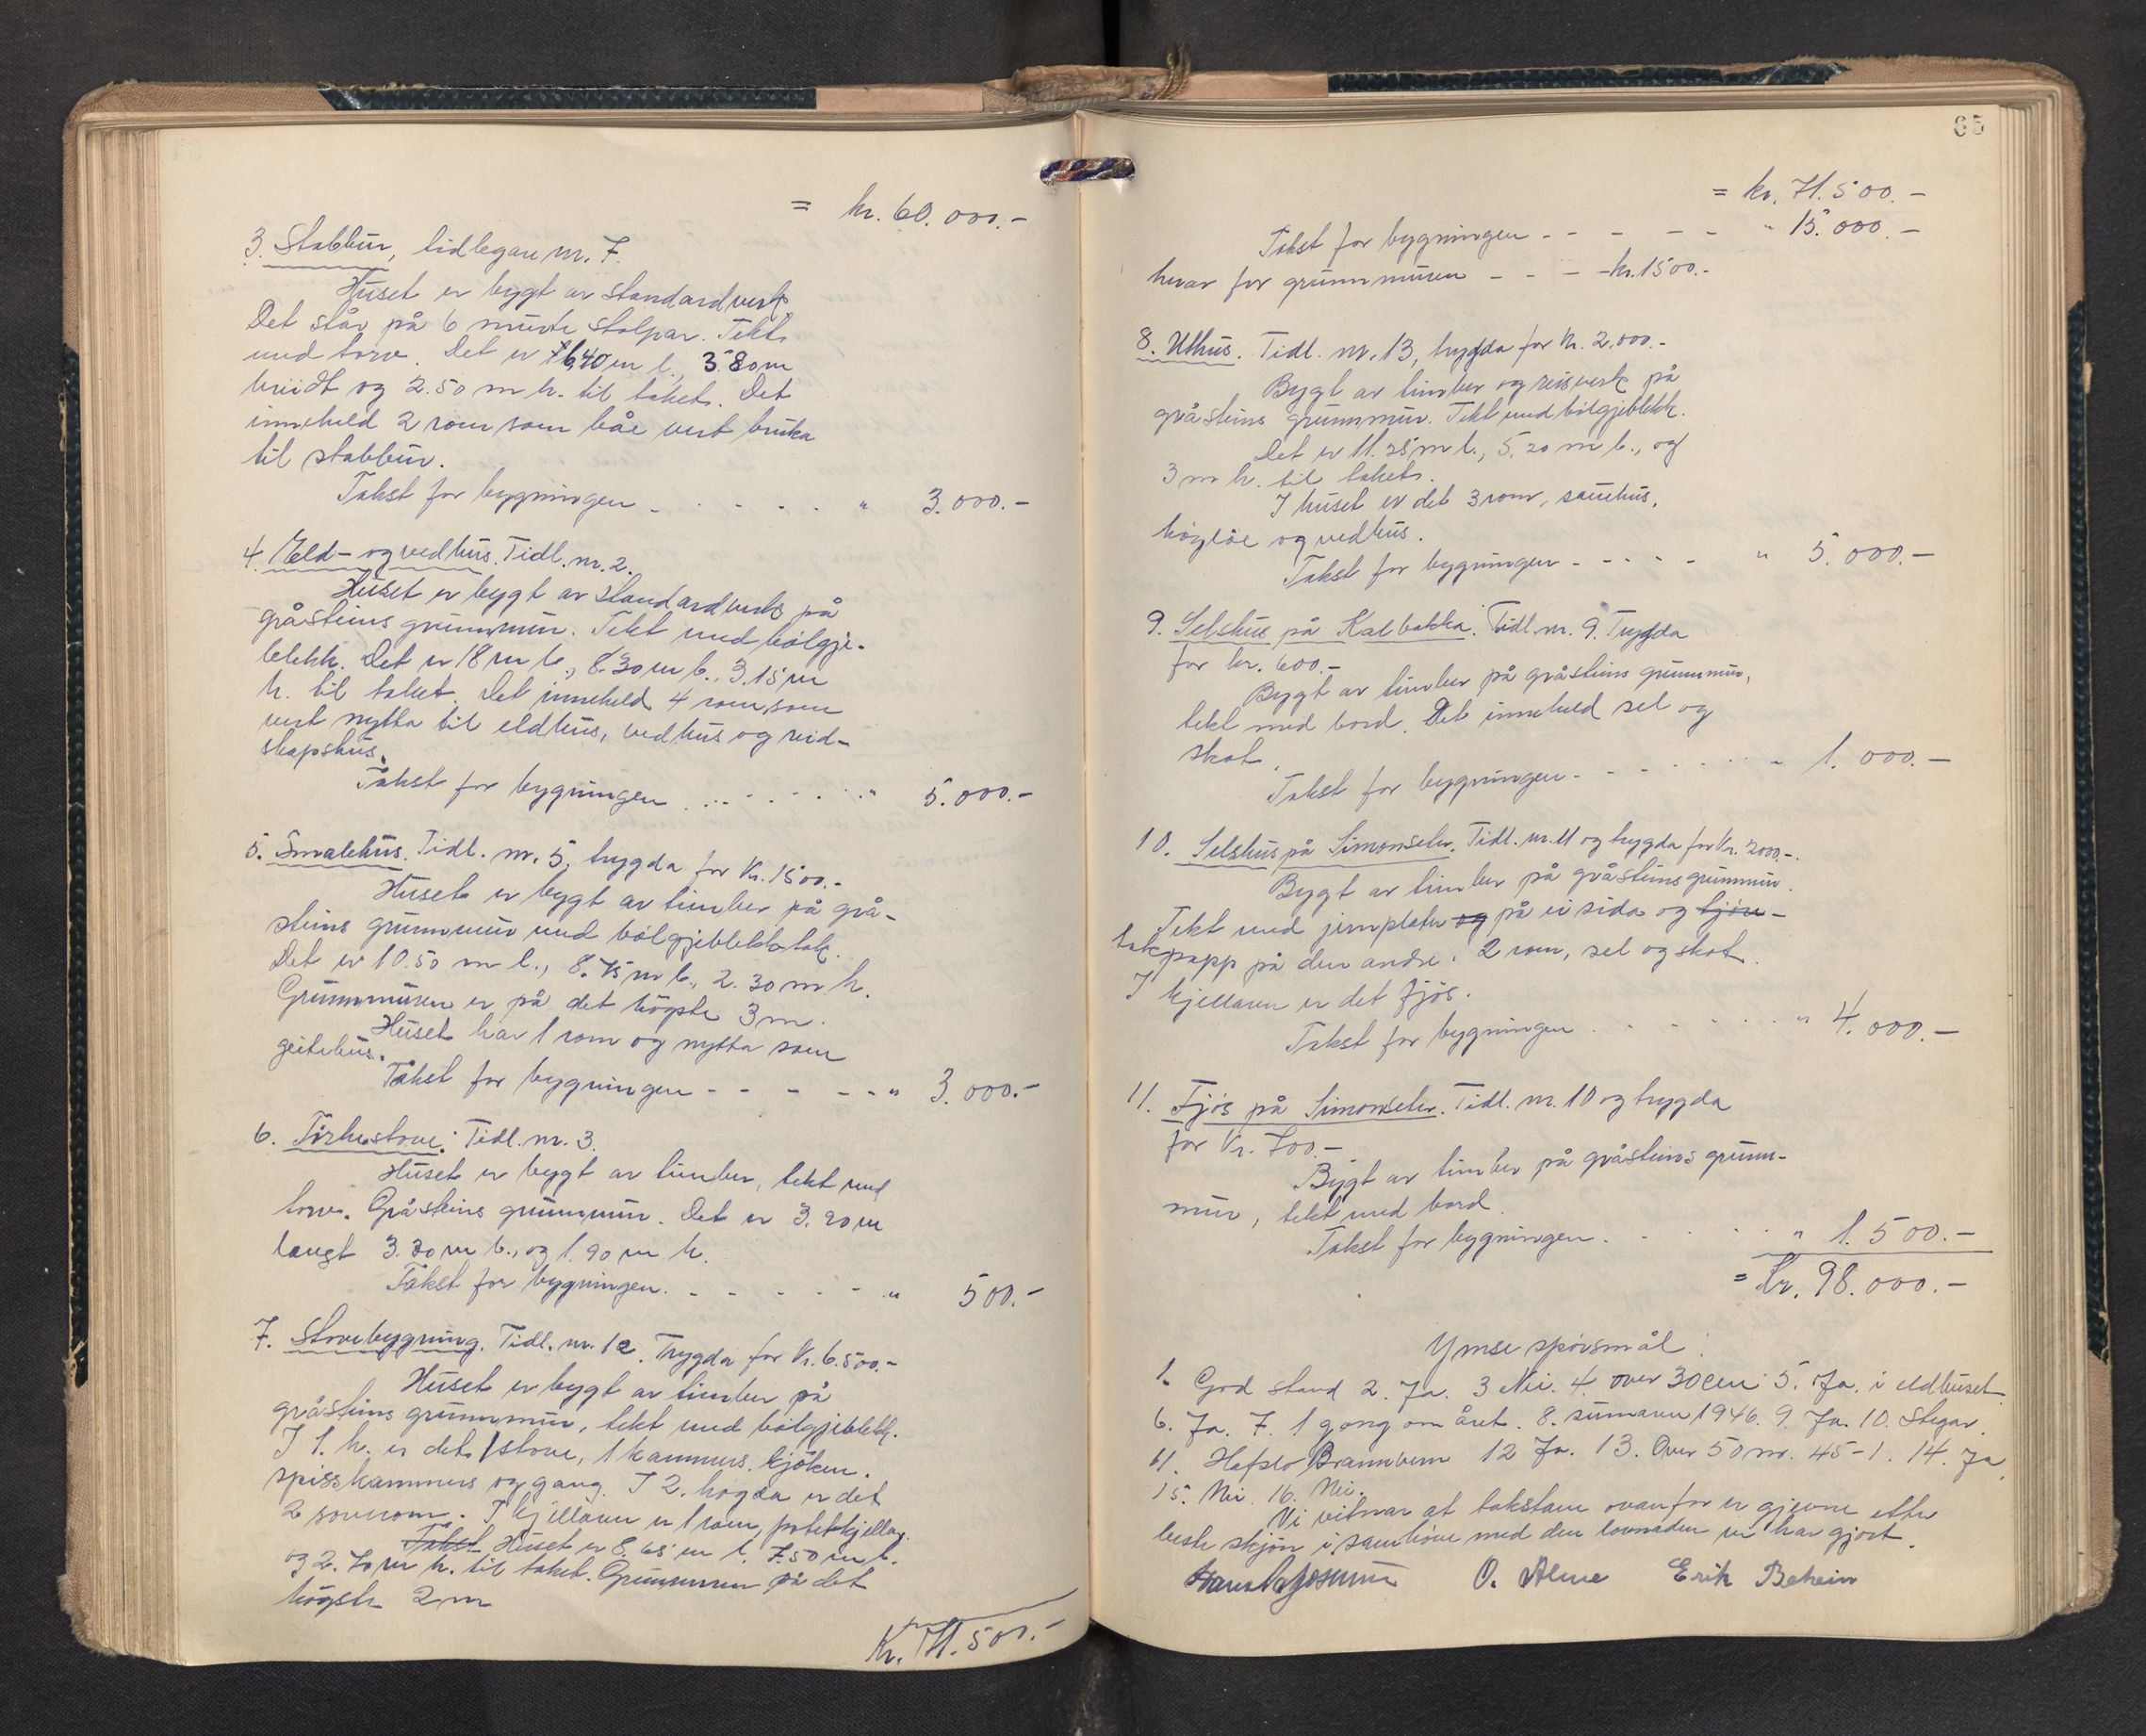 = kr. 60.000.-
3. Stabbur, tidlegare nr. 7.
Huset er bygt av standardverk
Det står på 6 murte stolpar. Tekt
med torv. Det er 6,40 m l., 3.80 m
breidt og 2.50 m h. til taket. Det
inneheld 2 rom som båe vert bruka
til stabbur.
Takst for bygningen - - - - - " 3.000.-
4. Eld- og vedhus. Tidl. nr. 2.
Huset er bygt av standardverk på
gråsteins grunnmur. Tekt med bölgje-
blekk. Det er 18 m l., 8.30 m b., 3.15 m
h. til taket. Det inneheld 4 rom som
vert nytta til eldhus, vedhus og reid-
skapshus.
Takst for bygningen - - - - - " 5.000.-
5. Smalehus. Tidl. nr. 5, trygda for Kr. 1500.-
Huset er bygt av timber på grå-
steins grunnmur med bölgjeblekktak.
Det er 10.50 m l., 8.75 m b., 2.30 m h.
Grunnmuren er på det högste 3 m.
Huset har 1 rom og nytta som
geitehus.
Takst for bygningen - - - - - " 3.000.-
6. Törkestove. Tidl. nr. 3.
Huset er bygt av timber, tekt med
torv. Gråsteins grunnmur. Det er 3.90 m
langt 3.30 m b., og 1.90 m h.
Takst for bygningen. - - - - - " 500.-
7. Stovebygning. Tidl. nr. 12. Trygda for Kr. 6.500.-
Huset er bygt av timber på
gråsteins grunnmur, tekt med bölgjeblekk.
I 1. h. er det 1 stove, 1 kammers. kjöken.
spisskammers og gang. I 2. högda er det
2 soverom. I kjellaren er 1 rom, potetkjellar.
Takst Huset er 8.65 m l. 7.50 m b.
og 2.70 m h. til taket. Grunnmuren på det
högste 2 m
Kr. 71.500.-
65
= kr. 71.500.-
Takst for bygningen - - - - - " 15.000.-
herav for grunnmuren - - - - kr. 1500.-
8. Uthus. Tidl. nr. 13, trygda for Kr. 2.000.-
Bygt av timber og reisverk på
gråsteins grunnmur. Tekt med bölgjeblekk.
Det er 11.25 m l., 5.20 m b., og
3 m h. til taket.
I huset er det 3 rom, sauehus,
höyløe og vedhus.
Takst for bygningen - - - - - " 5.000.-
9. Selshus på Kalbakka. Tidl. nr. 9. Trygda
for kr. 600.-
Bygt av timber på gråsteins grunnmur,
tekt med bord. Det inneheld sel og
skot.
Takst for bygningen - - - - - " 1.000.-
10. Selshus på Simonsele. Tidl. nr. 11 og trygda for Kr. 2000.-.
Bygt av timber på gråsteinsgrunnmur.
Tekt med jernplater og på ei sida og tjøre-
takpapp på den andre. 2 rom, sel og skot.
I kjellaren er det fjös.
Takst for bygningen - - - - - " 4.000.-
11. Fjös på Simonsele. Tidl. nr. 10 og trygda
for Kr. 700.-
Bygt av timber på gråsteins grunn-
mur, tekt med bord.
Takst for bygningen. - - - " 1.500.-
= Kr. 98.000.-
Ymse spörsmål:
1. God stand 2. Ja. 3 Nei. 4. over 30 cm 5. Ja. i eldhuset
6. Ja. 7. 1 gong om året. 8. sumaren 1946. 9. Ja. 10. Stegar.
11. Hafslo Brannvern 12 Ja. 13. Over 50 m. 45-1. 14. Ja
15. Nei. 16. Nei.
Vi vitnar at takstane ovanfor er gjevne etter
beste skjön i samhöve med den lovnaden vi har gjort.
O. Alme Erik Behein